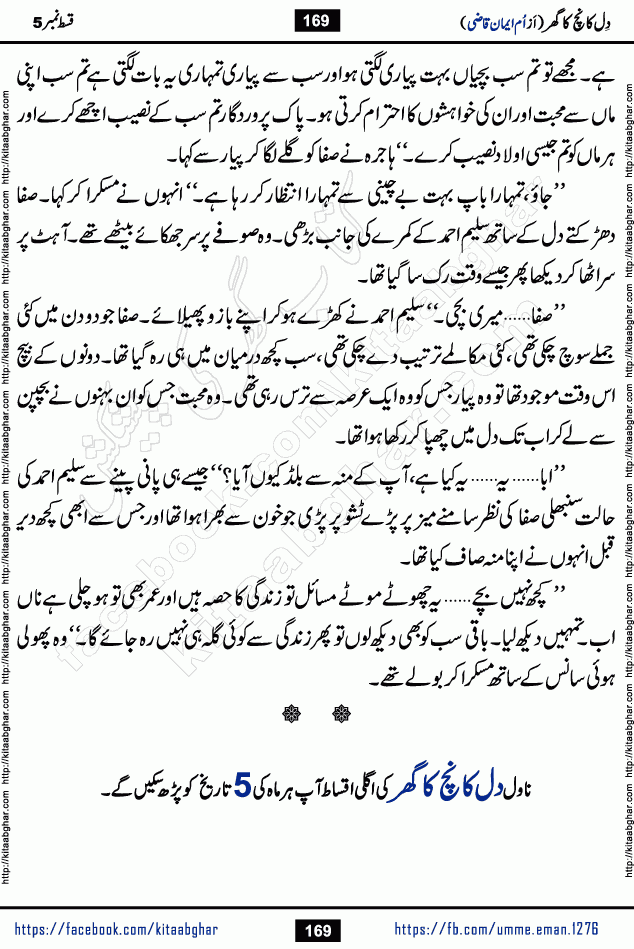 دِل کانچ کا گھر (از اُم ایمان قاضی) 169 قسط نمبر 5
ہے۔ مجھے تو تم سب بچیاں بہت پیاری لگتی ہو اور سب سے پیاری تمہاری یہ بات لگتی ہے تم سب اپنی
ماں سے محبت اور ان کی خواہشوں کا احترام کرتی ہو۔ پاک پروردگار تم سب کے نصیب اچھے کرے اور
ہر ماں کو تم جیسی اولاد نصیب کرے۔‘‘ ہاجرہ نے صفا کو گلے لگا کر پیار سے کہا۔
’’جاؤ، تمہارا باپ بہت بے چینی سے تمہارا انتظار کر رہا ہے۔‘‘ انہوں نے مسکرا کر کہا۔ صفا
دھڑکتے دل کے ساتھ سلیم احمد کے کمرے کی جانب بڑھی۔ وہ صوفے پر سر جھکائے بیٹھے تھے۔ آہٹ پر
سر اٹھا کر دیکھا پھر جیسے وقت رک سا گیا تھا۔
’’صفا...... میری بچی۔‘‘ سلیم احمد نے کھڑے ہو کر اپنے بازو پھیلائے۔ صفا جو دو دن میں کئی
جملے سوچ چکی تھی، کئی مکالمے ترتیب دے چکی تھی، سب کچھ درمیان میں ہی رہ گیا تھا۔ دونوں کے بیچ
اس وقت موجود تھا تو وہ پیار جس کو وہ ایک عرصہ سے ترس رہی تھی۔ وہ محبت جس کو ان بہنوں نے بچپن
سے لے کر اب تک دل میں چھپا کر رکھا ہوا تھا۔
’’ابا...... یہ...... یہ کیا ہے، آپ کے منہ سے بلڈ کیوں آیا؟‘‘ جیسے ہی پانی پینے سے سلیم احمد کی
حالت سنبھلی صفا کی نظر سامنے میز پر پڑے ٹشو پر پڑی جو خون سے بھرا ہوا تھا اور جس سے ابھی کچھ دیر
قبل انہوں نے اپنا منہ صاف کیا تھا۔
’’کچھ نہیں بچے...... یہ چھوٹے موٹے مسائل تو زندگی کا حصہ ہیں اور عمر بھی تو ہو چلی ہے ناں
اب۔ تمہیں دیکھ لیا۔ باقی سب کو بھی دیکھ لوں تو پھر زندگی سے کوئی گلہ ہی نہیں رہ جائے گا۔‘‘ وہ پھولی
ہوئی سانس کے ساتھ مسکرا کر بولے تھے۔
ناول دل کانچ کا گھر کی اگلی اقساط آپ ہر ماہ کی 5 تاریخ کو پڑھ سکیں گے۔
https://facebook.com/kitaabghar 169 https://fb.com/umme.eman.1276
http://kitaabghar.com http://kitaabghar.com http://kitaabghar.com http://kitaabghar.com http://kitaabghar.com http://kitaabghar.com
http://kitaabghar.com http://kitaabghar.com http://kitaabghar.com http://kitaabghar.com http://kitaabghar.com http://kitaabghar.com
کتاب گھر کی پیشکش
kitaabghar.com
facebook.com/kitaabghar